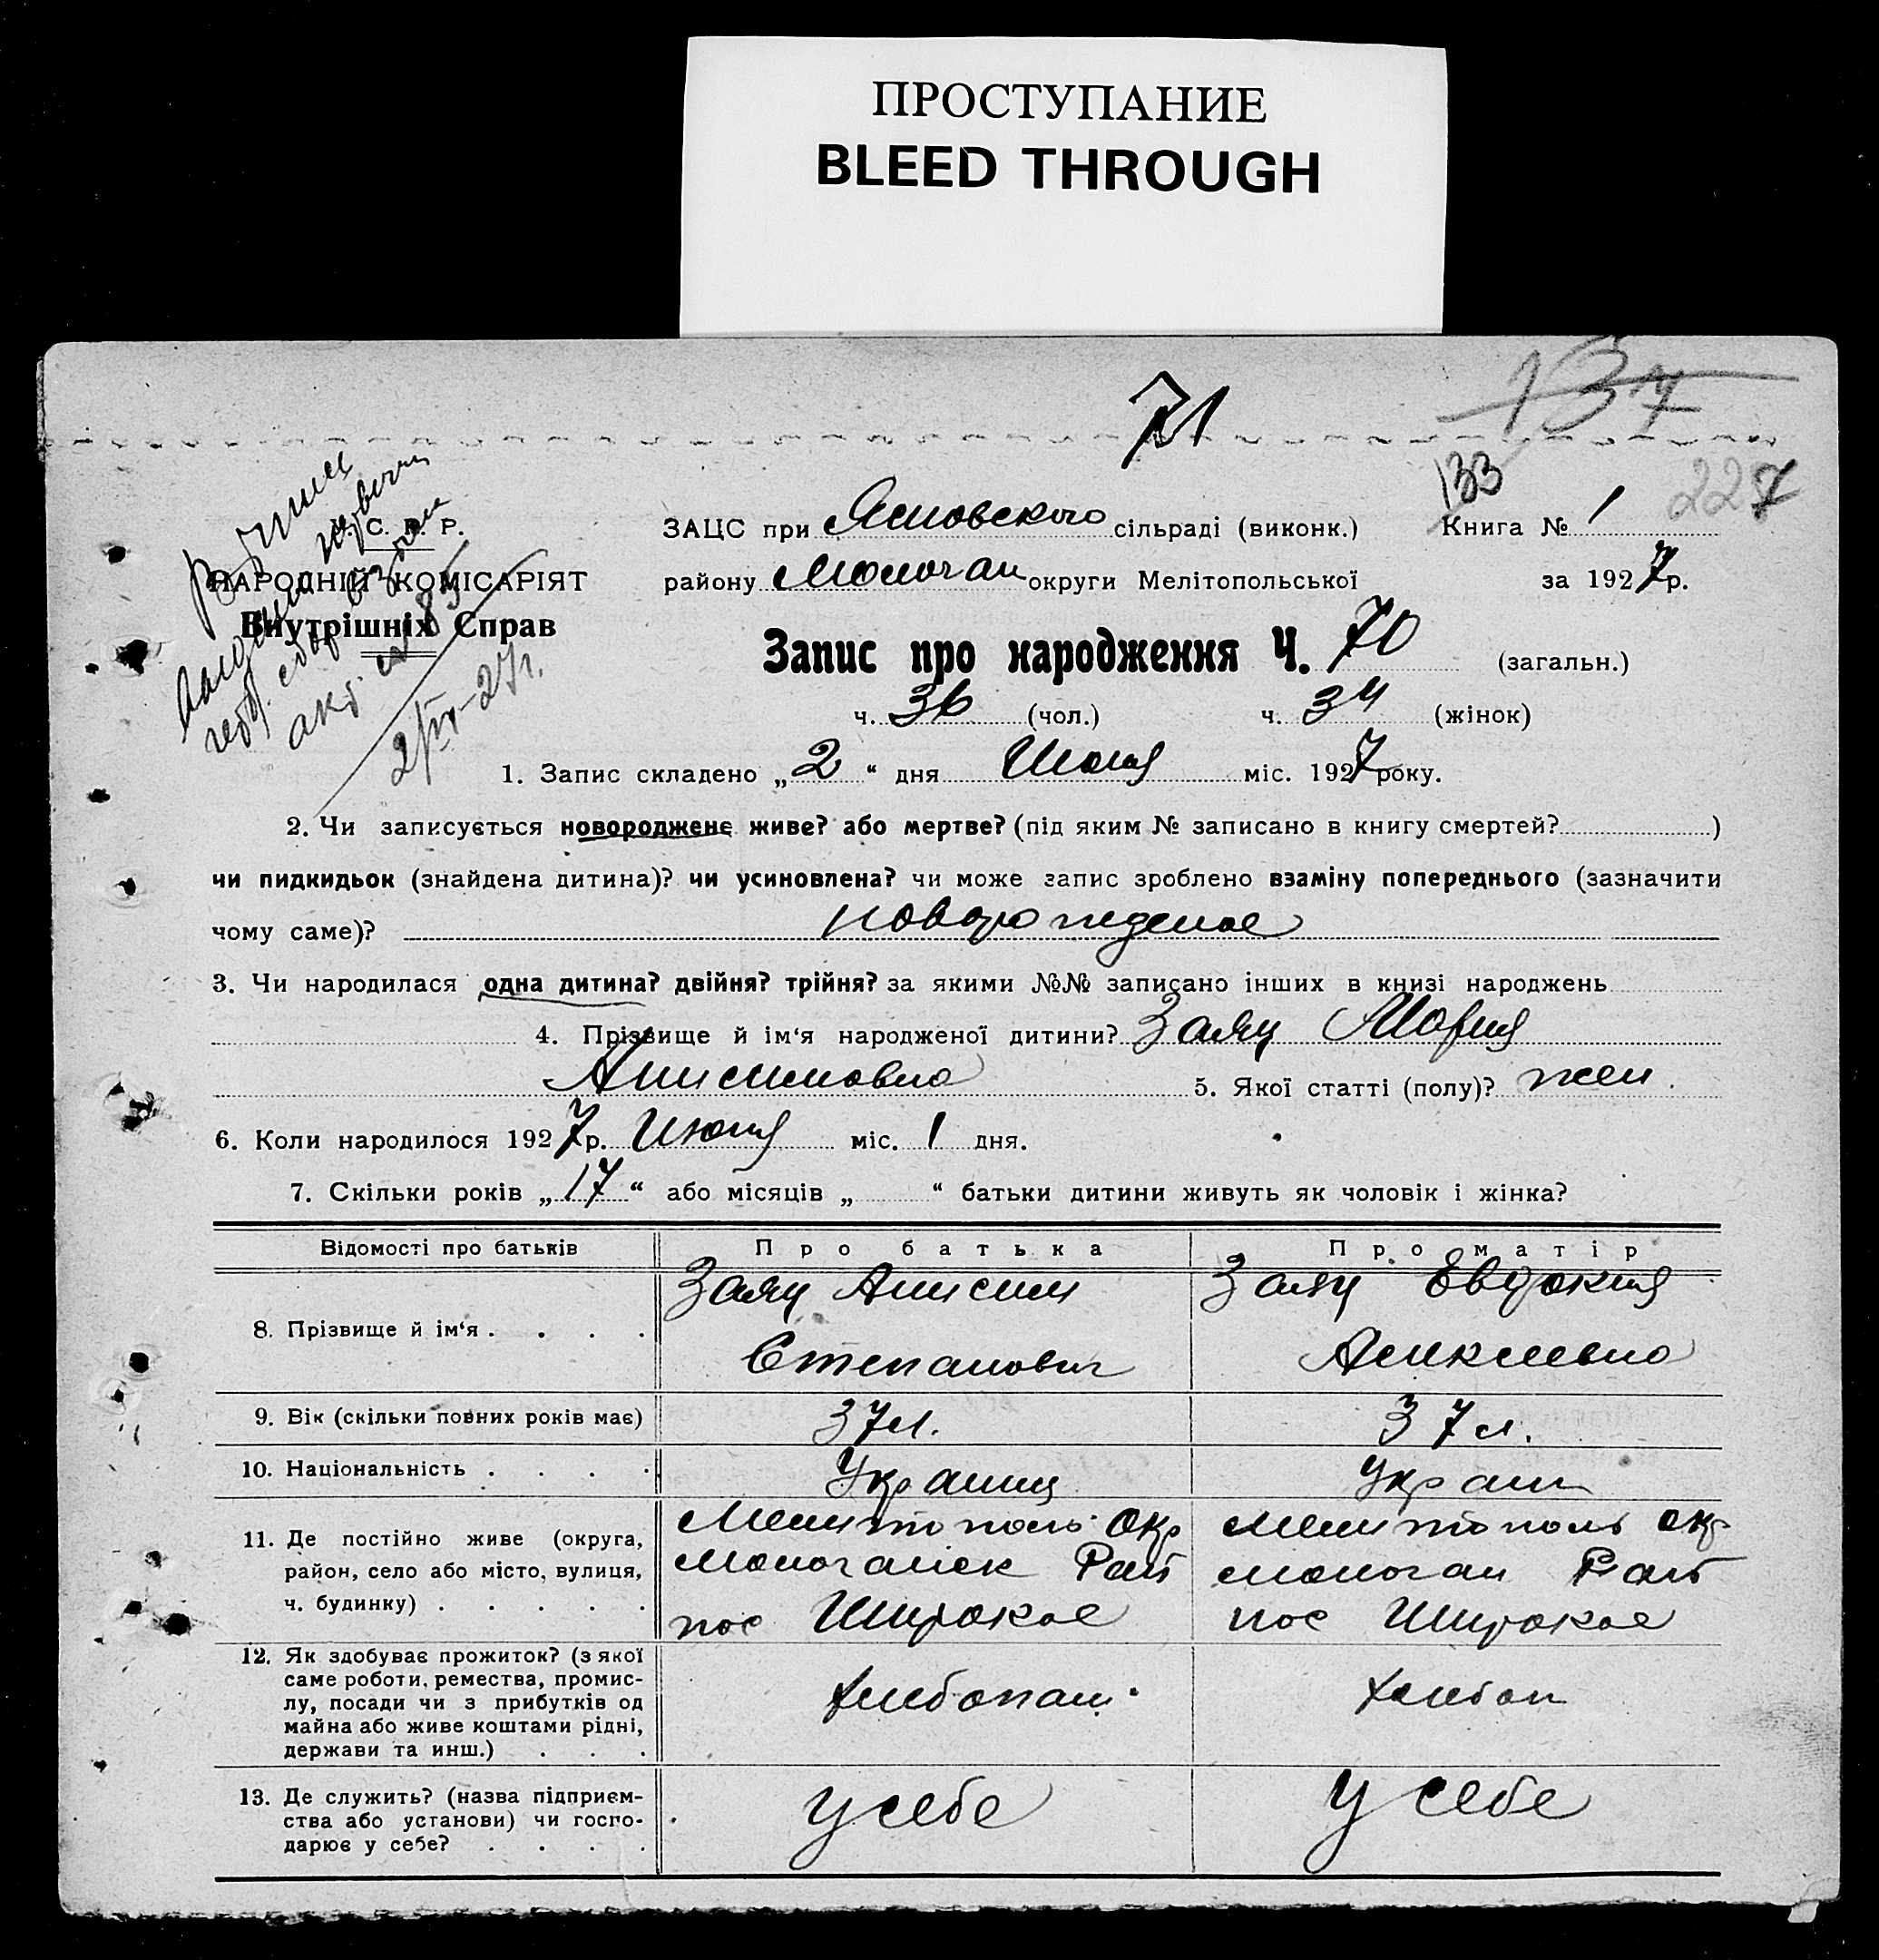 ПРОСТУПАНИЕ
BLEED THROUGH
71
137
133
227
С. Р. Р.
НАРОДНІЙ КОМІСАРІЯТ
Внутрішніх Справ
акт. №85
2/VI-27г.
ЗАЦС при Ясновского сільраді (виконк.) Книга № 1
району Молочан округи Мелітопольської за 1927 р.
Запис про народження Ч. 70 (загальн.)
ч. 36 (чол.) ч. 34 (жінок)
1. Запис складено „2“ дня Июня міс. 1927 року.
2. Чи записується новороджене живе? або мертве? (під яким № записано в книгу смертей? )
чи пидкидьок (знайдена дитина)? чи усиновлена? чи може запис зроблено взаміну попереднього (зазначити
чому саме)? новорожденое
3. Чи народилася одна дитина? двійня? трійня? за якими №№ записано інших в книзі народжень
4. Прізвище й ім‘я народженої дитини? Заяц Мария
Анисимовна 5. Якої статті (полу)? жен.
6. Коли народилося 1927 р. Июня міс. 1 дня.
7. Скільки років „17“ або місяців „ “ батьки дитини живуть як чоловік і жінка?
Відомості про батьків Про батька Про матір
8. Прізвище й ім‘я . . . . Заяц Анисим Степанович Заяц Евдокия Алексеевна
9. Вік (скільки повних років має) 37 л. 37 л.
10. Національність . . . . Украинц Украин
11. Де постійно живе (округа, Мелитополь. Окр Мелитополь окр
район, село або місто, вулиця, Молочанск Рай Молочан Рай
ч. будинку) . . . . . пос Широкое пос Широкое
12. Як здобуває прожиток? (з якої
саме роботи, ремества, промис-
лу, посади чи з прибутків од хлебопаш. хлебоп
майна або живе коштами рідні,
держави та инш.) . . .
13. Де служить? (назва підприєм-
ства або установи) чи госпо- у себе у себе
дарює у себе? . . . .